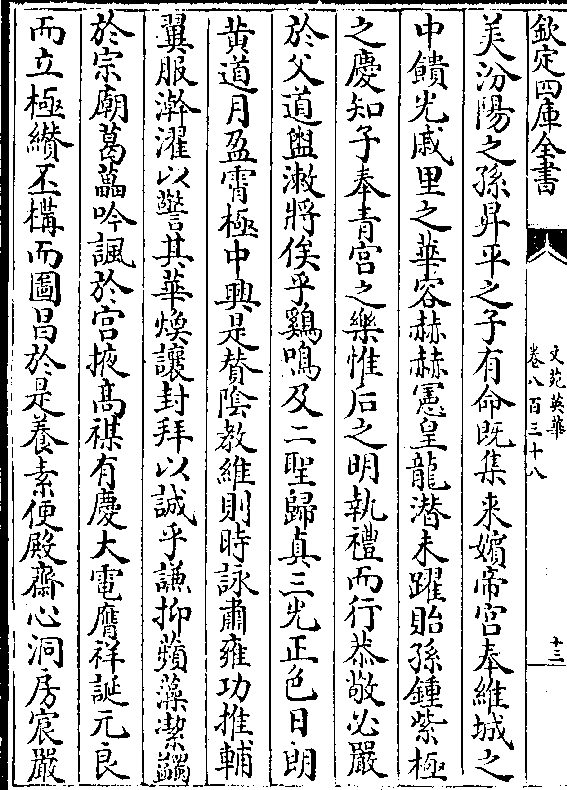 欽定四庫全書
文苑英華
卷八百三十八
十三
美汾陽之孫昇平之子有命既集来嬪帝宫奉維城之
中饋光戚里之華容赫赫憲皇龍潜未躍貽孫鍾紫極
之慶知子奉青宫之樂惟后之明執禮而行恭敬必嚴
於父道盥漱將俟乎鷄鳴及二聖歸真三光正色日朗
黄道月盈霄極中興是賛陰教維則時詠肅雍功推輔
翼服澣濯以警其華煥讓封拜以誠乎謙抑蘋藻潔蠲
於宗廟葛藟吟諷於宫掖髙禖有慶大電膺祥誕元良
而立極纘丕構而圖昌於是養素便殿齋心洞房宸嚴